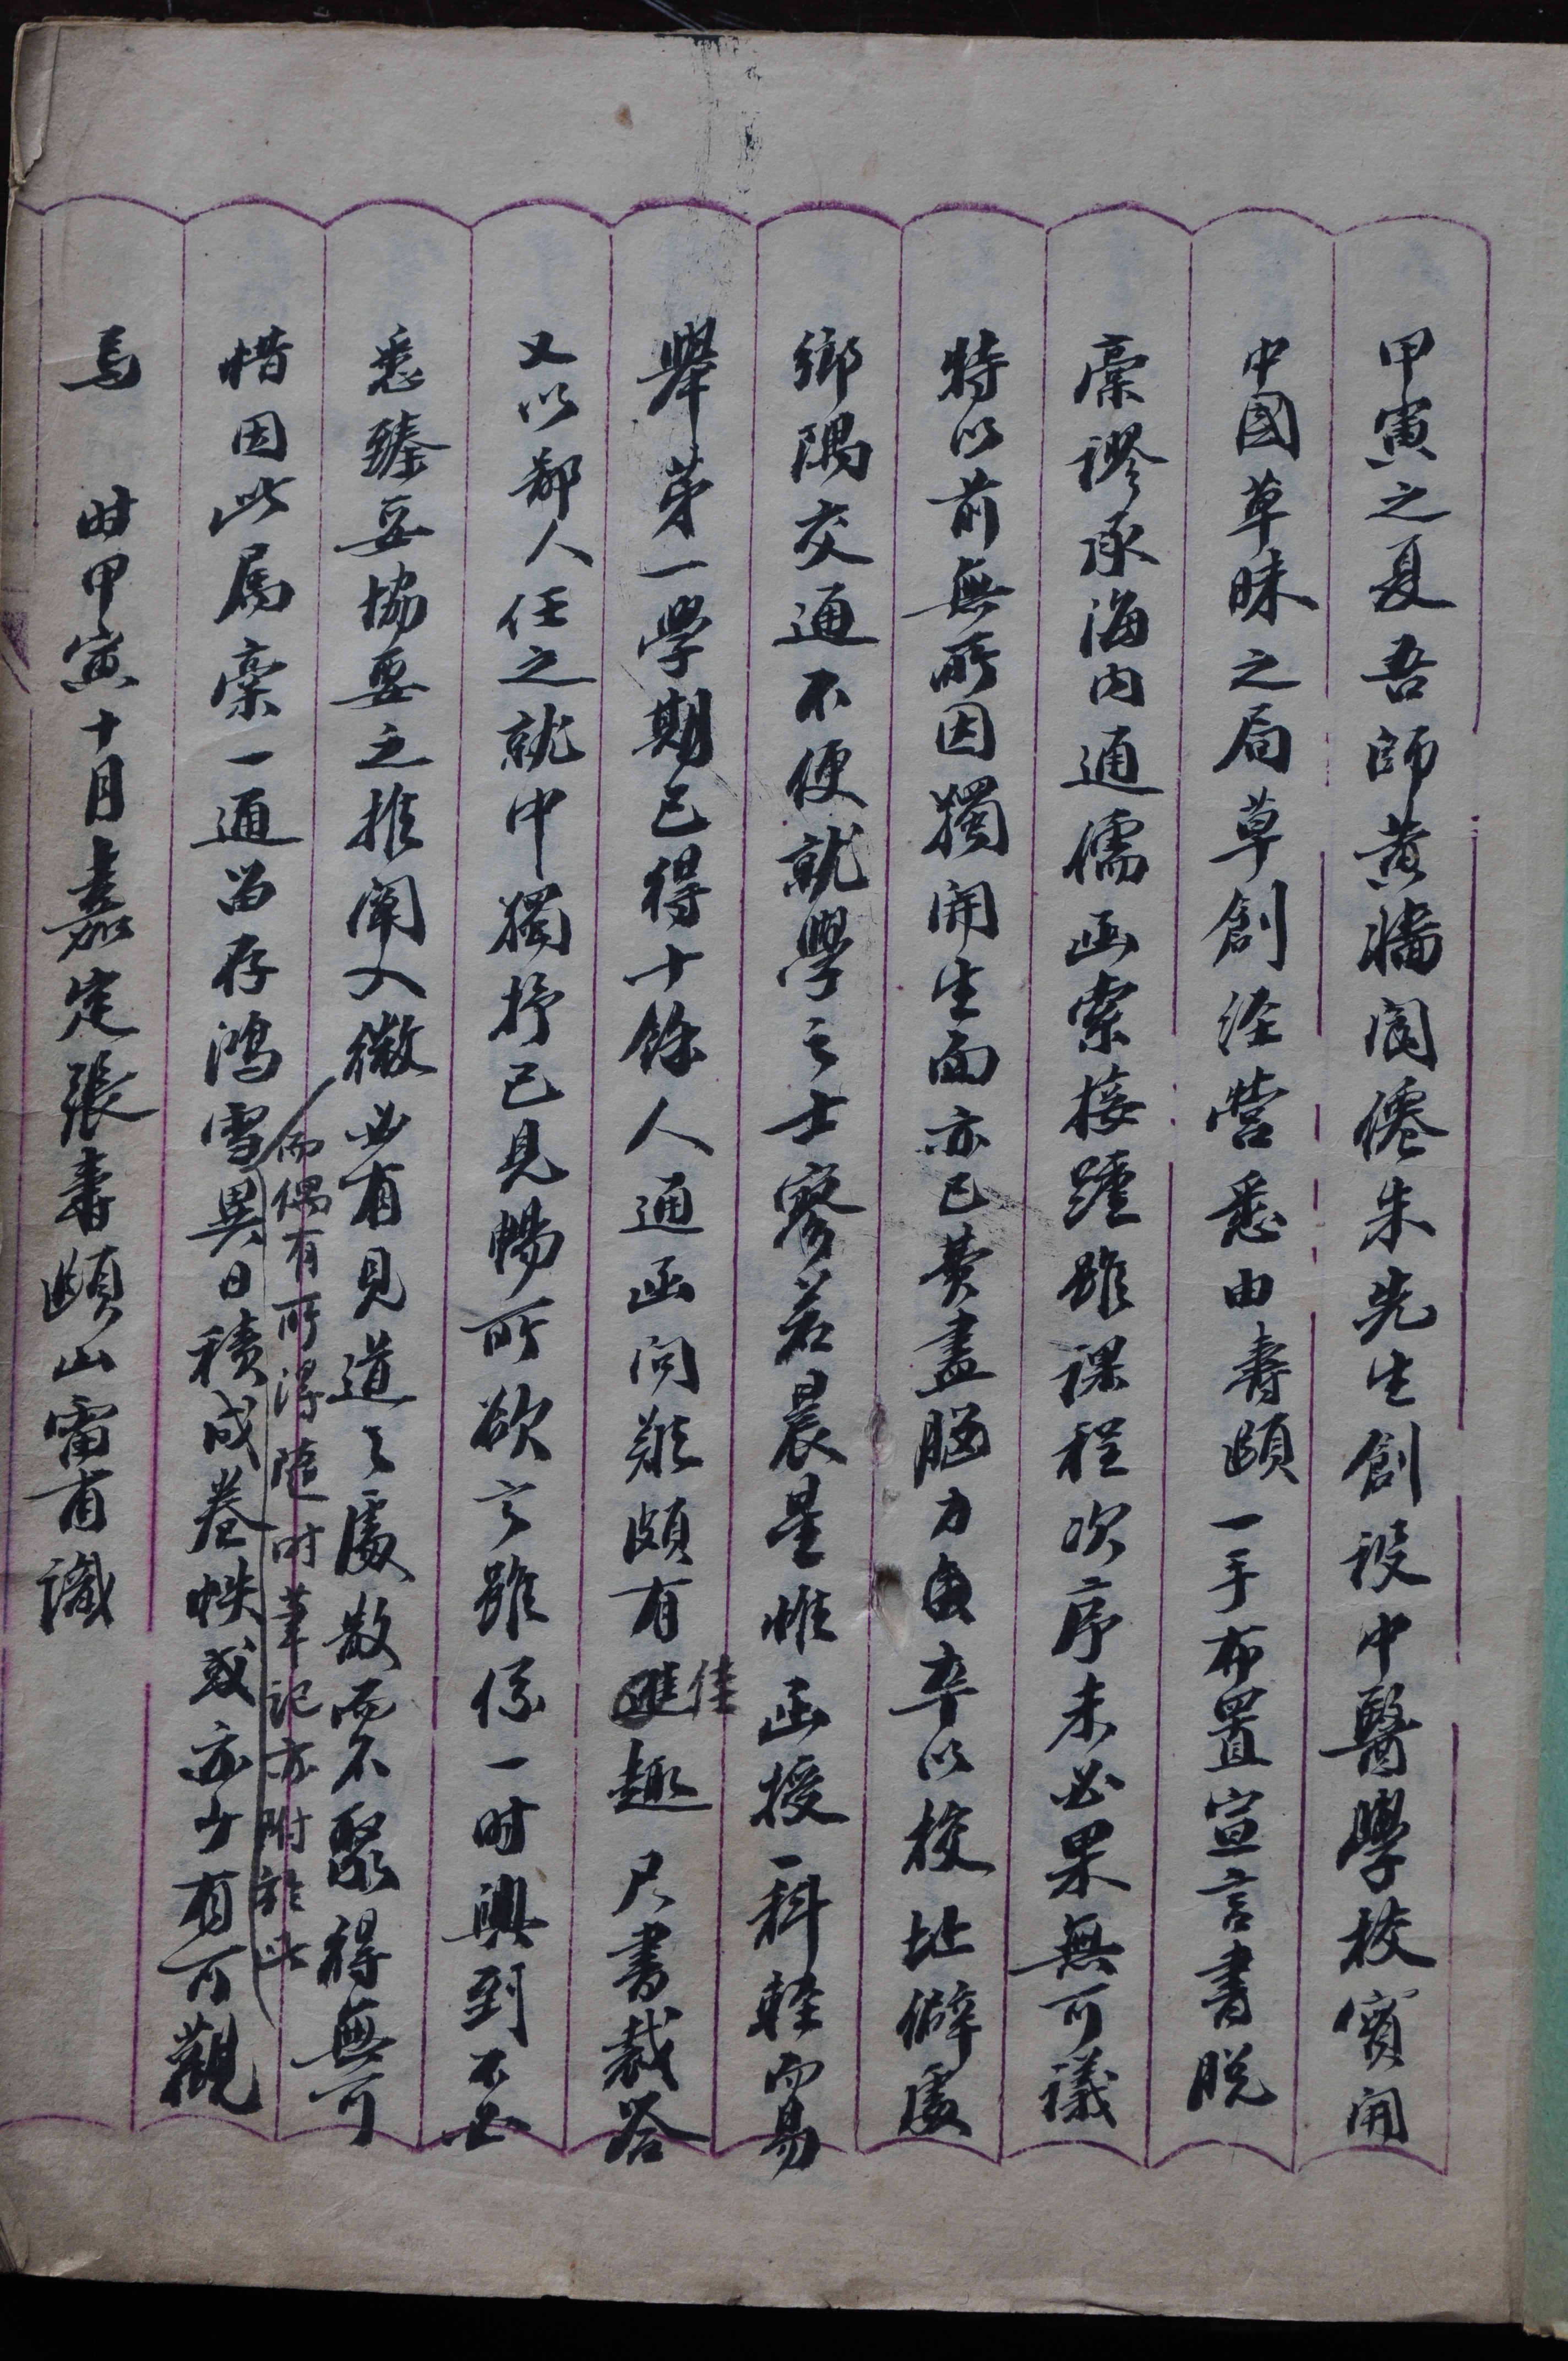 甲寅之夏吾師黄墻閬僊朱先生創設中醫學校實開
中國草昧之局草創经營悉由壽頤一手布置宣言書脱
稾謬承海内通儒函索接踵雖課程次序未必果無可議
特以前無所因獨開生面亦已費盡腦力矣卒以校址僻處
鄉隅交通不便就學之士寥若晨星惟函授一科輕而易
舉苐一學期已得十餘人通函问難頗有佳趣尺書裁答
又以鄙人任之就中獨抒己見暢所欲言雖係一时興到不必
悉臻妥協要之推闡入微必有見道之處散而不聚得無可
而偶有所得随时筆記亦附於此
惜因此属稾一通留存鴻雪異日積成卷帙或亦少有可觀
焉 时甲寅十月嘉定張壽頤山雷甫識